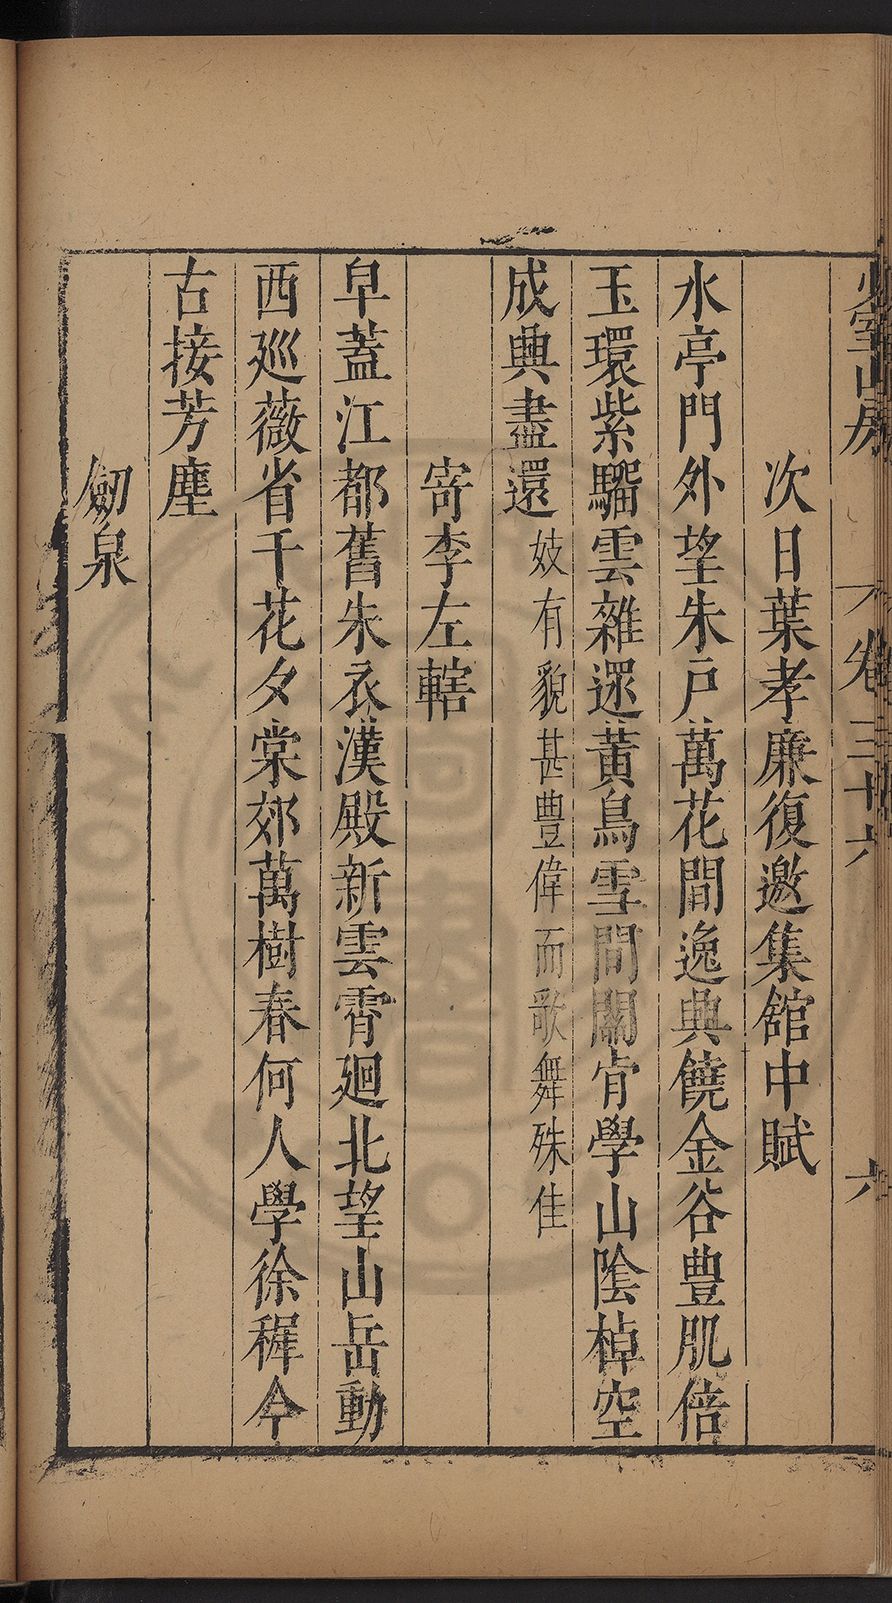 少室山房 卷三十六 六
次日葉孝廉復邀集館中賦
水亭門外望朱戸萬花間逸興饒金谷豊肌倍
玉環紫騮雲雜遝黃鳥雪間關肯學山陰棹空
成興盡還妓有貌甚豊偉而歌舞殊佳
寄李左轄
皁蓋江都舊朱衣漢殿新雲霄廻北望山岳動
西廵薇省千花夕棠郊萬樹春何人學徐穉今
古接芳塵
劒泉